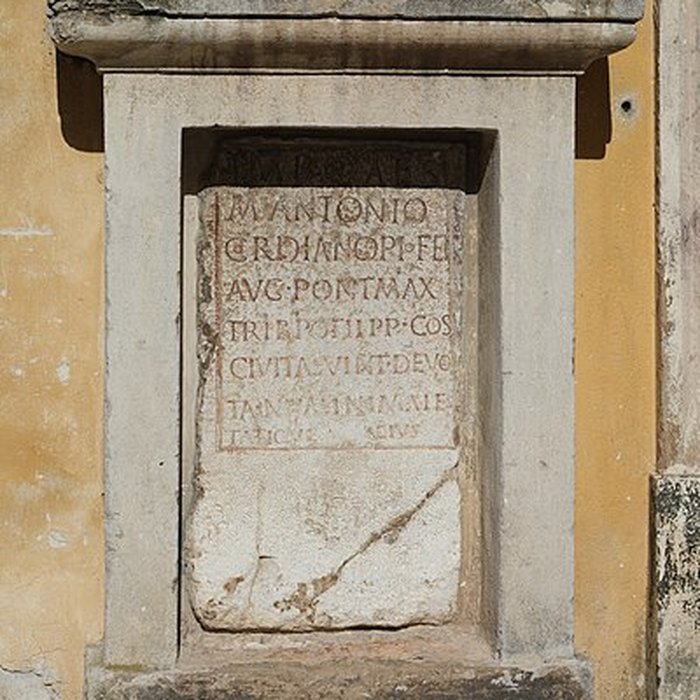 IMP CAES
M ANTONIO
GORDIANO PI·FE
AVG·PONT MAX
TRIB POT II PP·COS
CIVITAS VINT·DEVO
TA NVMINI MAIE
TATIQVE EIVS